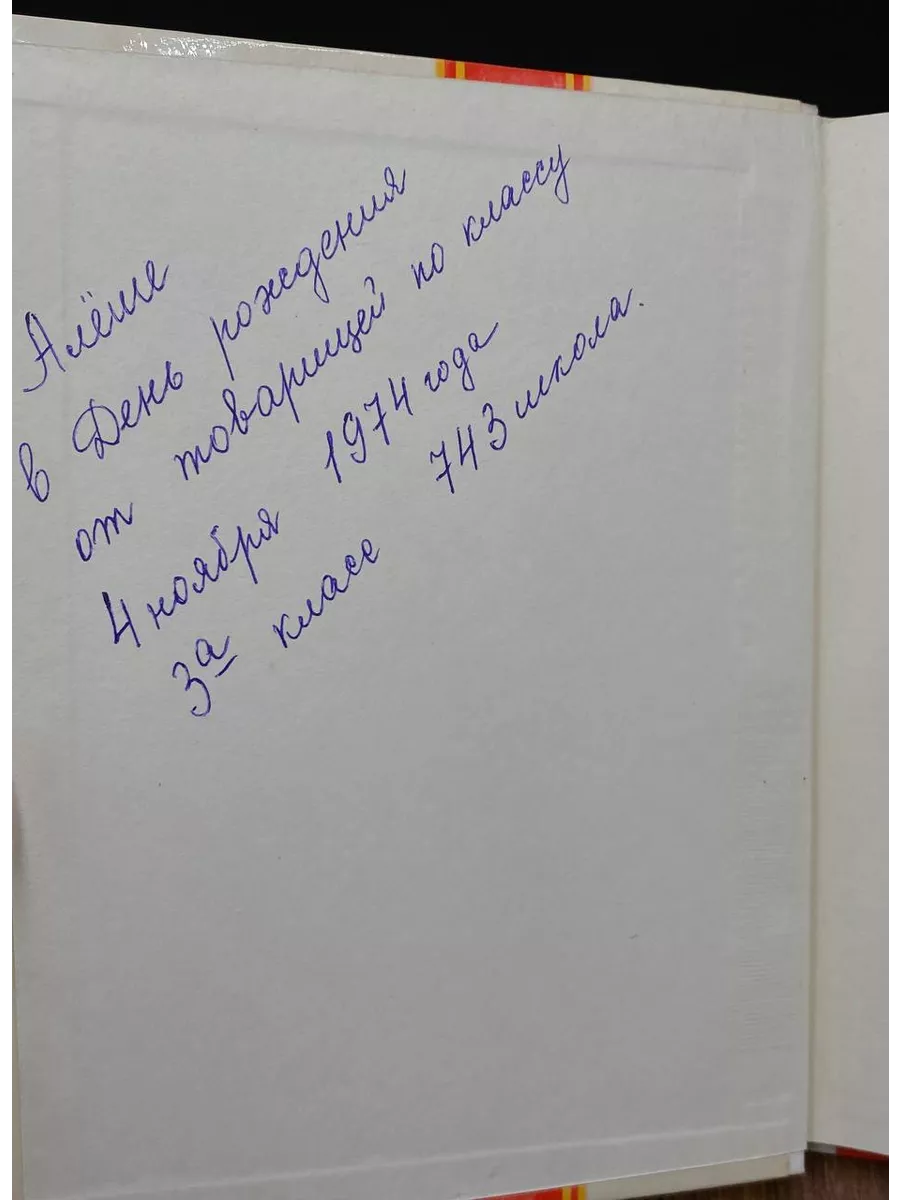 Алёше
в День рождения
от товарищей по классу
4 ноября 1974 года
3а класс 743 школа.